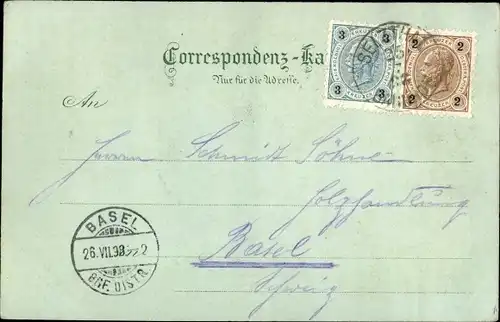 Correspondenz-Ka
Nur für die Adresse.
3 3
3 3
2 2
2 2
An
Herren Schmidt Söhne
Holzhandlung
Basel
Schweiz
BASEL
26.VII.98
BRF. DISTR.